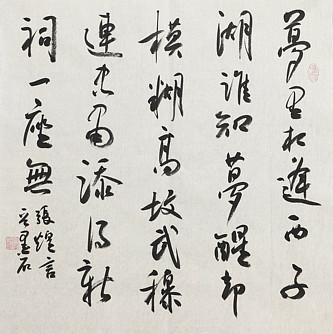 夢里相逢西子
湖誰知夢醒却
模糊高坟武穆
連忠肅添得新
祠一座無
張煌言